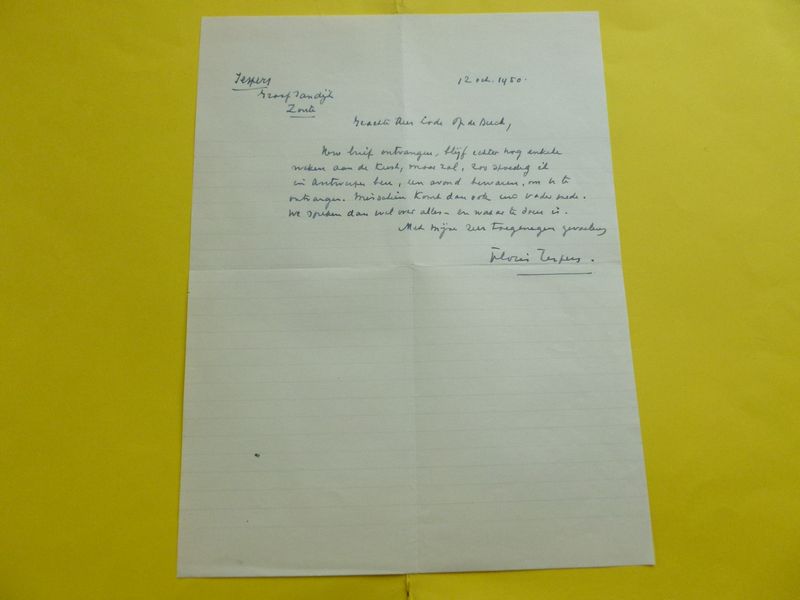 Jespers
12 oct. 1950.
Graaf Jansdijk
Zoute
Geachte Heer Lode Op de Beeck,
Uw brief ontvangen, blijf echter nog enkele
weken aan de Kust, maar zal, zoo spoedig ik
in Antwerpen ben, een avond bewaren, om U te
ontvangen. Misschien komt dan ook uw vader mede.
We spreken dan wel over alles – en wat er te doen is.
Met mijne zeer toegenegen gevoelens
Floris Jespers.